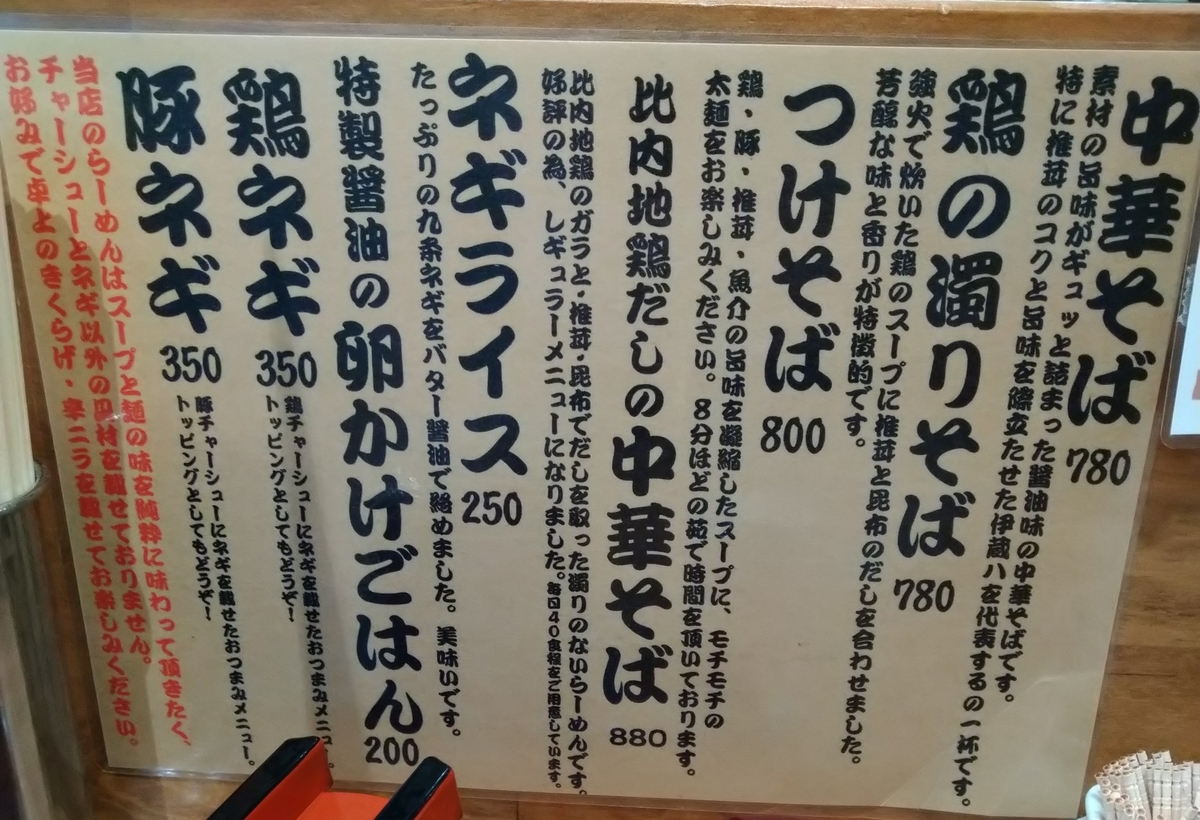 中華そば 780
素材の旨味がギュッと詰まった醤油味の中華そばです。
特に椎茸のコクと旨味を際立たせた伊蔵八を代表するの一杯です。
鶏の濁りそば 780
強火で炊いた鶏のスープに椎茸と昆布のだしを合わせました。
芳醇な味と香りが特徴的です。
つけそば 800
鶏・豚・椎茸・魚介の旨味を凝縮したスープに、モチモチの
太麺をお楽しみください。8分ほどの茹で時間を頂いております。
比内地鶏だしの中華そば 880
比内地鶏のガラと・椎茸・昆布でだしを取った濁りのないらーめんです。
好評の為、レギュラーメニューになりました。毎日40食程をご用意しています。
ネギライス 250
たっぷりの九条ネギをバター醤油で絡めました。美味いです。
特製醤油の卵かけごはん 200
鶏ネギ 350
鶏チャーシューにネギを載せたおつまみメニュー。
トッピングとしてもどうぞ!
豚ネギ 350
豚チャーシューにネギを載せたおつまみメニュー。
トッピングとしてもどうぞ!
当店のらーめんはスープと麺の味を純粋に味わって頂きたく、
チャーシューとネギ以外の具材を載せておりません。
お好みで卓上のきくらげ・辛ニラを載せてお楽しみください。